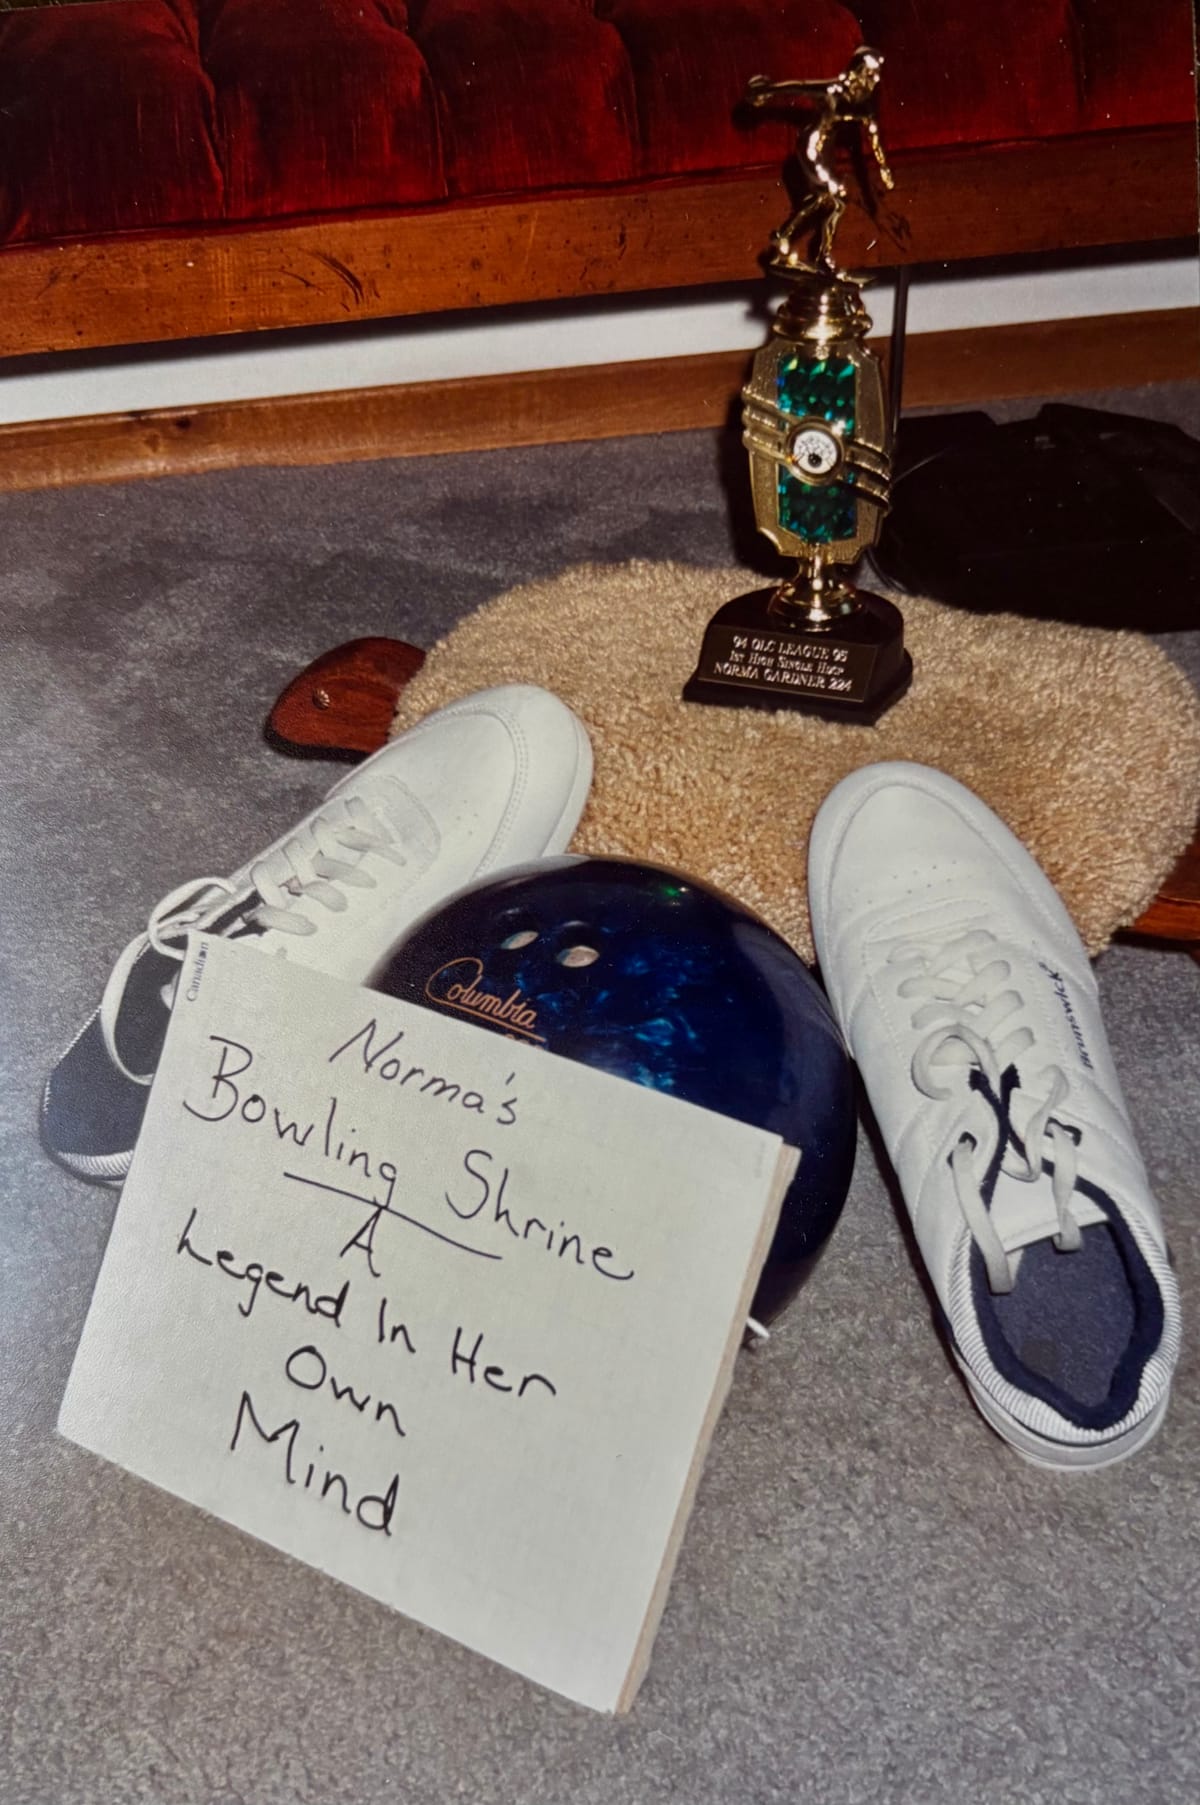 94 OLC LEAGUE 95
1ST HIGH SINGLE HDCP
NORMA GARDNER 224
Columbia
Brunswick
Canadian
Norma's
Bowling Shrine
A
Legend In Her
Own
Mind